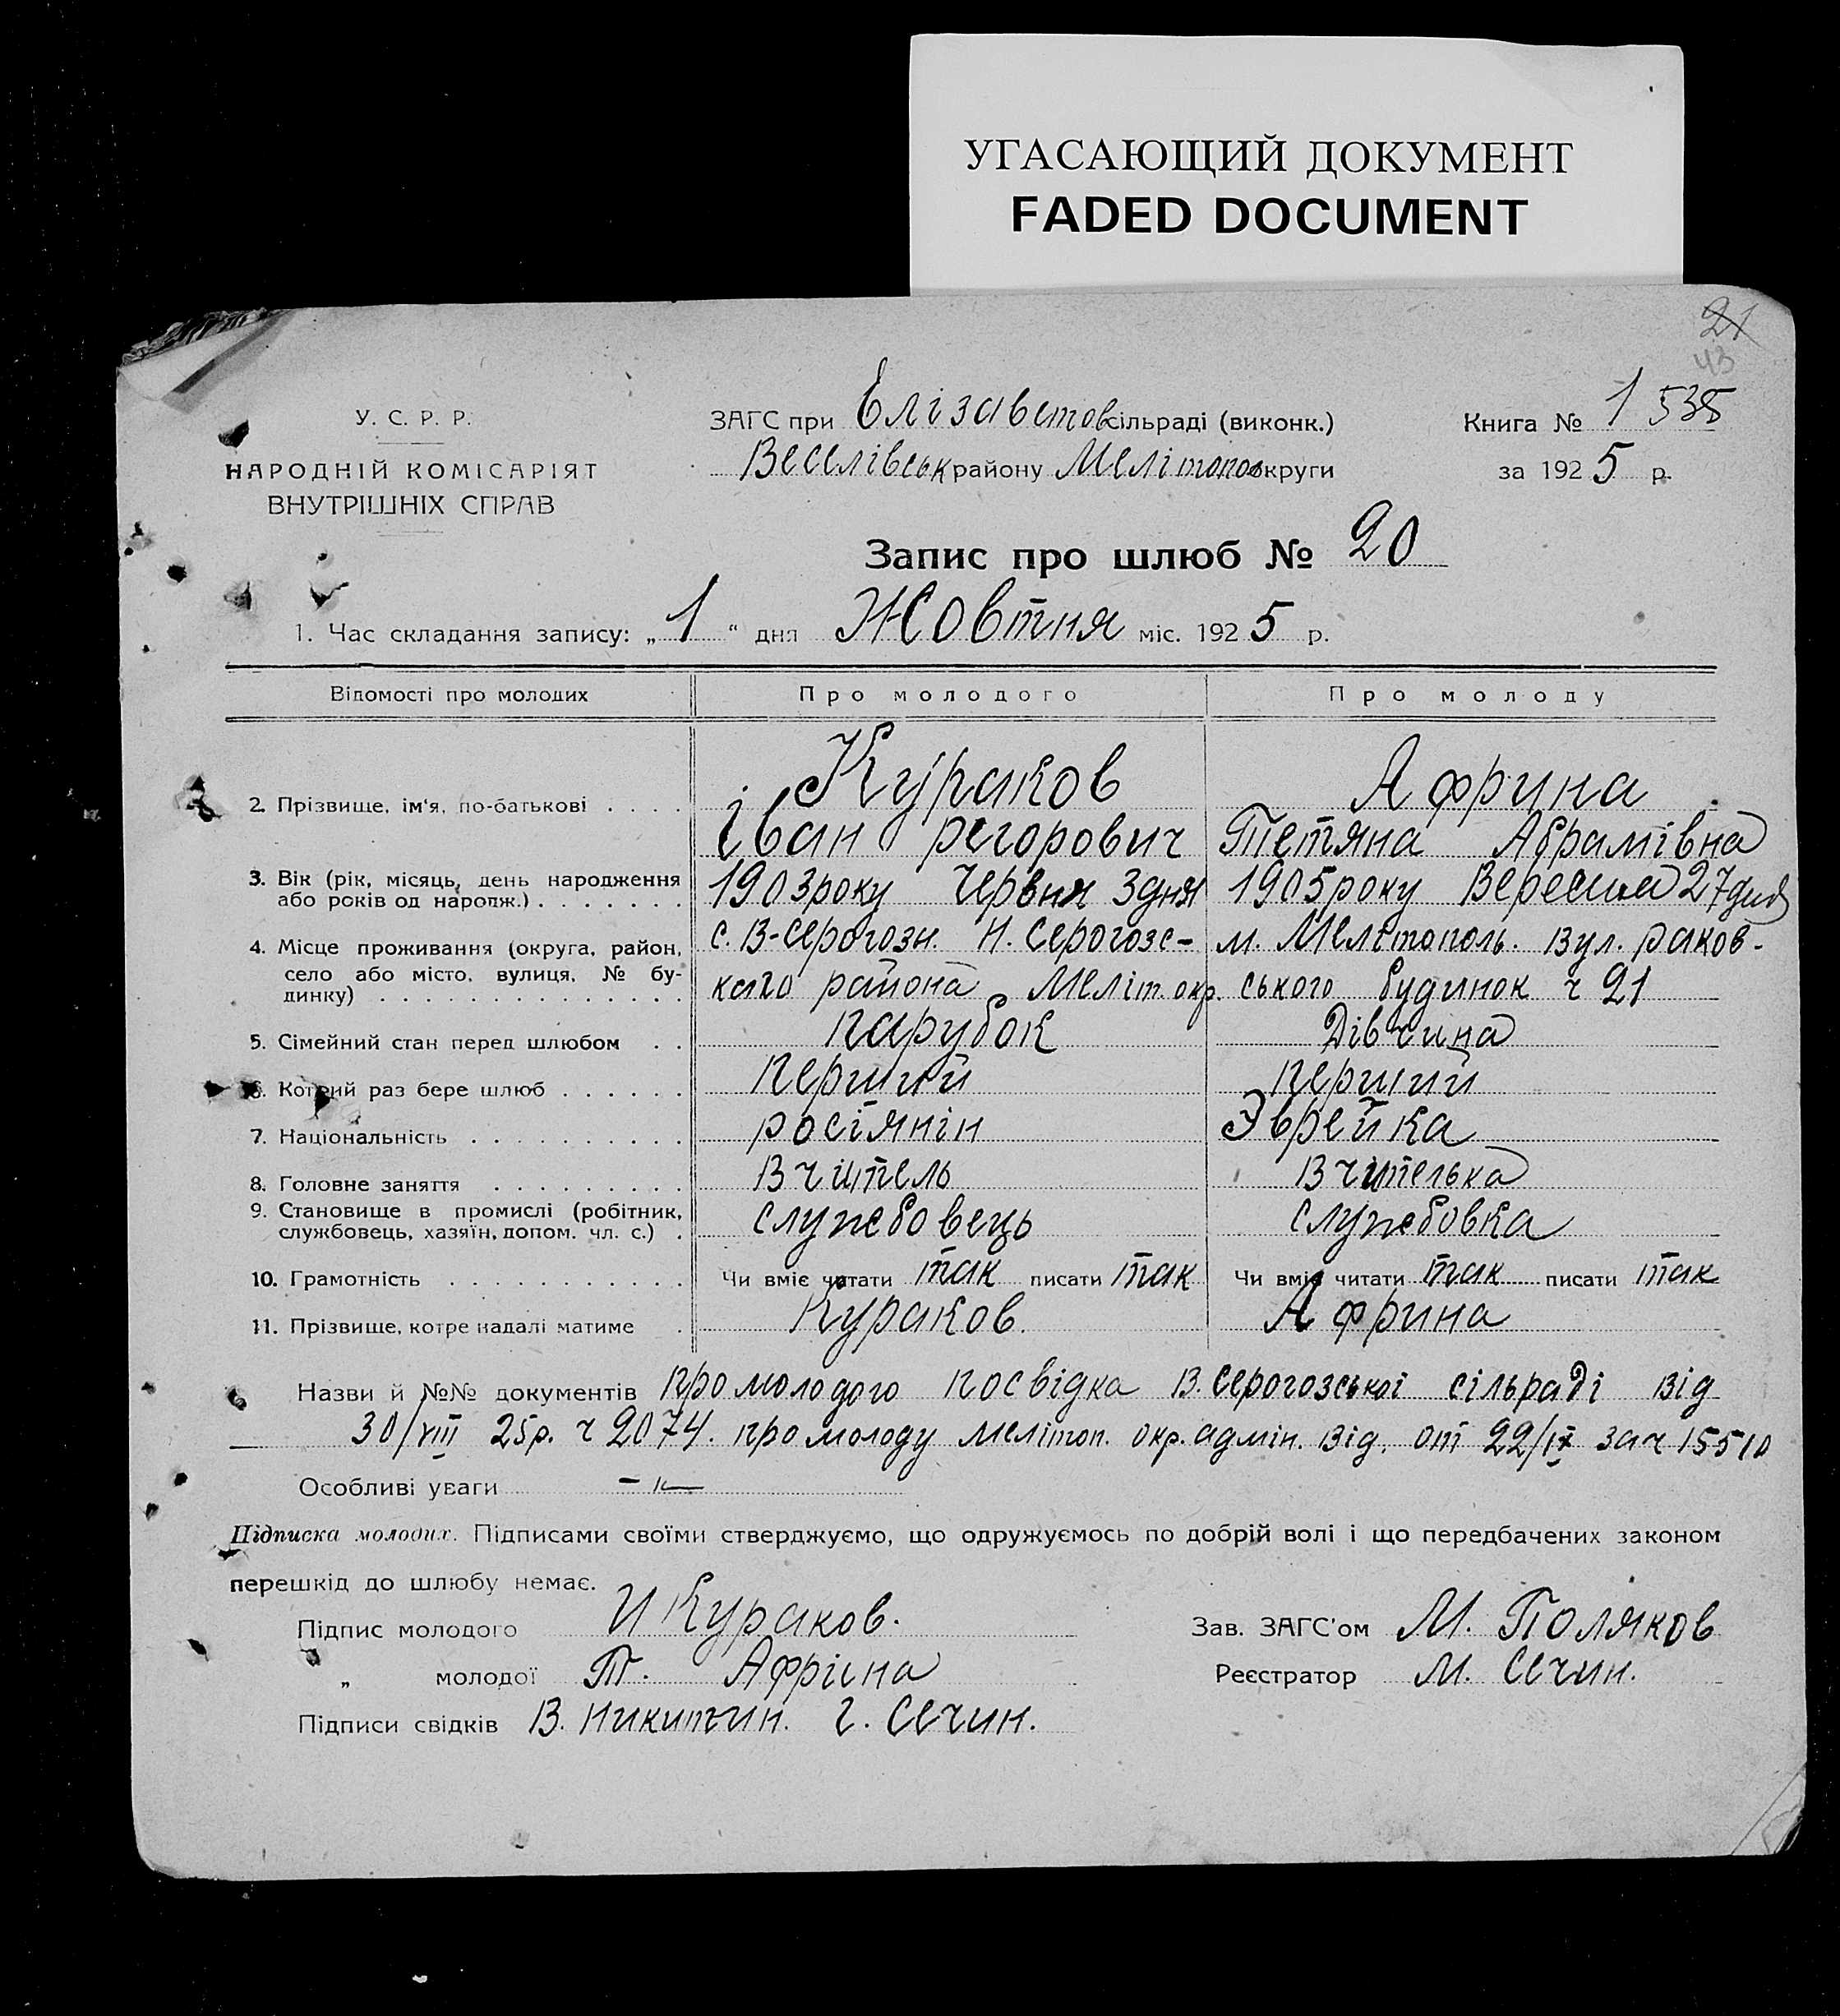 УГАСАЮЩИЙ ДОКУМЕНТ
FADED DOCUMENT
21
43
У. С. Р. Р.
НАРОДНІЙ КОМІСАРІЯТ
ВНУТРІШНІХ СПРАВ
ЗАГС при Елізаветов сільраді (виконк.)
Веселівськ району Мелітопол округи
Книга № 1 535
за 1925 р.
Запис про шлюб № 20
1. Час складання запису: „1“ дня Жовтня міс. 1925 р.
Відомості про молодих Про молодого Про молоду
2. Прізвище, ім'я, по-батькові . . . . Кураков Африна
Іван регорович Тетяна Абрамівна
3. Вік (рік, місяць, день народження або років од народж.) . . . . . . . 1903 року Червня 3 дня 1905 року Вересня 27 дня
4. Місце проживання (округа, район, село або місто, вулиця, № будинку) . . . . . . . . . . . . . .
с. В-Серогозн. Н. Серогозс- м. Мелітополь. Вул. Раков-
кого района Меліт. окр. ського будинок ч 21
5. Сімейний стан перед шлюбом . . парубок Дівчина
6. Котрий раз бере шлюб . . . . . . перший перший
7. Національність . . . . . . . . . . росіянін Эврейка
8. Головне заняття . . . . . . . . . Вчитель Вчителька
9. Становище в промислі (робітник, службовець, хазяїн, допом. чл. с.) . службовець службовка
10. Грамотність . . . . . . . . . . . Чи вміє читати так писати так Чи вміє читати так писати так
11. Прізвище, котре надалі матиме . Кураков. Африна
Назви й №№ документів про молодого посвідка В. Серогозської сільраді від
30/VIII 25р. ч 2074. про молоду Мелітоп. окр. адмін. від. от 22/IX за ч 15510
Особливі уваги – „ –
Підписка молодих. Підписами своїми стверджуємо, що одружуємось по добрій волі і що передбачених законом
перешкід до шлюбу немає.
Підпис молодого И Кураков. Зав. ЗАГС'ом М. Поляков
„ молодої Т. Афріна Реєстратор М. Сечин.
Підписи свідків В. Никитин. Г. Сечин.